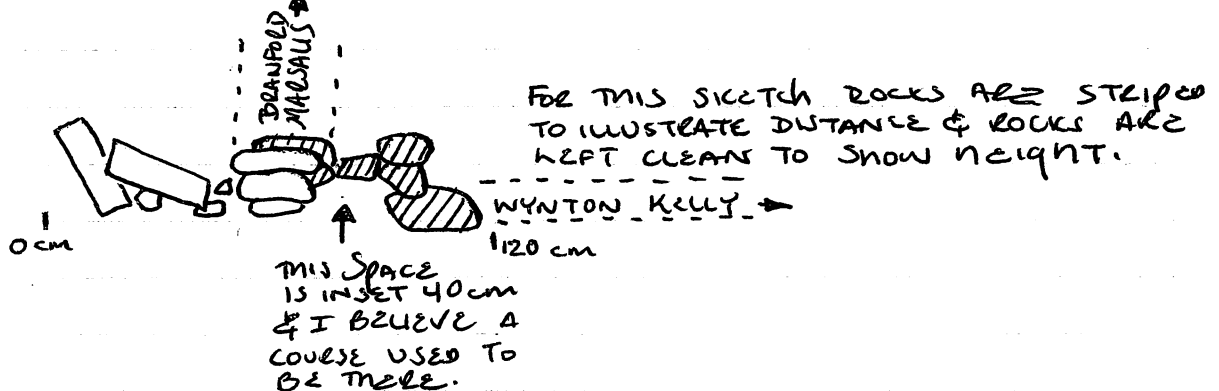 BRANFORD
MARSALIS
FOR THIS SKETCH ROCKS ARE STRIPED
TO ILLUSTRATE DISTANCE & ROCKS ARE
LEFT CLEAN TO SHOW HEIGHT.
WYNTON KELLY
0 cm
120 cm
THIS SPACE
IS INSET 40 cm
& I BELIEVE A
COURSE USED TO
BE THERE.